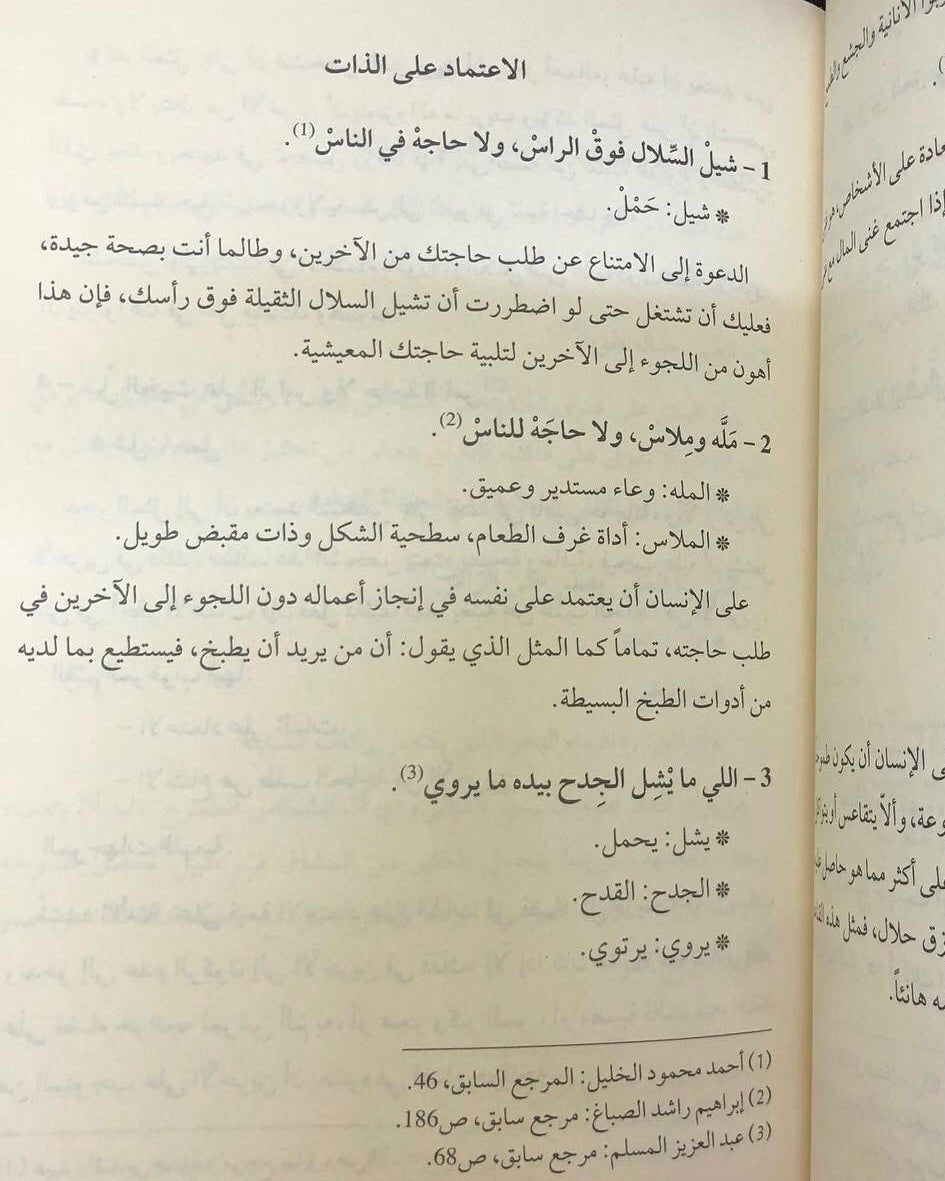 الاعتماد على الذات
1 - شيلْ السِّلال فوقْ الراسْ، ولا حاجهْ في الناسْ(1).
* شيل: حَمْلْ.
الدعوة إلى الامتناع عن طلب حاجتك من الآخرين، وطالما أنت بصحة جيدة،
فعليك أن تشتغل حتى لو اضطررت أن تشيل السلال الثقيلة فوق رأسك، فإن هذا
أهون من اللجوء إلى الآخرين لتلبية حاجتك المعيشية.
2 - مَلَّه ومِلاسْ، ولا حاجَهْ للناسْ(2).
* المله: وعاء مستدير وعميق.
* الملاس: أداة غرف الطعام، سطحية الشكل وذات مقبض طويل.
على الإنسان أن يعتمد على نفسه في إنجاز أعماله دون اللجوء إلى الآخرين في
طلب حاجته، تماماً كما المثل الذي يقول: أن من يريد أن يطبخ، فيستطيع بما لديه
من أدوات الطبخ البسيطة.
3 - اللي ما يْشِل الجِدح بيده ما يروي(3).
* يشل: يحمل.
* الجدح: القدح.
* يروي: يرتوي.
(1) أحمد محمود الخليل: المرجع السابق، 46.
(2) إبراهيم راشد الصباغ: مرجع سابق، ص186.
(3) عبد العزيز المسلم: مرجع سابق، ص68.
الأنانية والجشع
على الأشخاص،
إذا اجتمع غنى المال مع
الإنسان أن يكون
وألاّ يتقاعس أو
على أكثر مما هو حاصل
حلال، فمثل هذه
هانئاً.